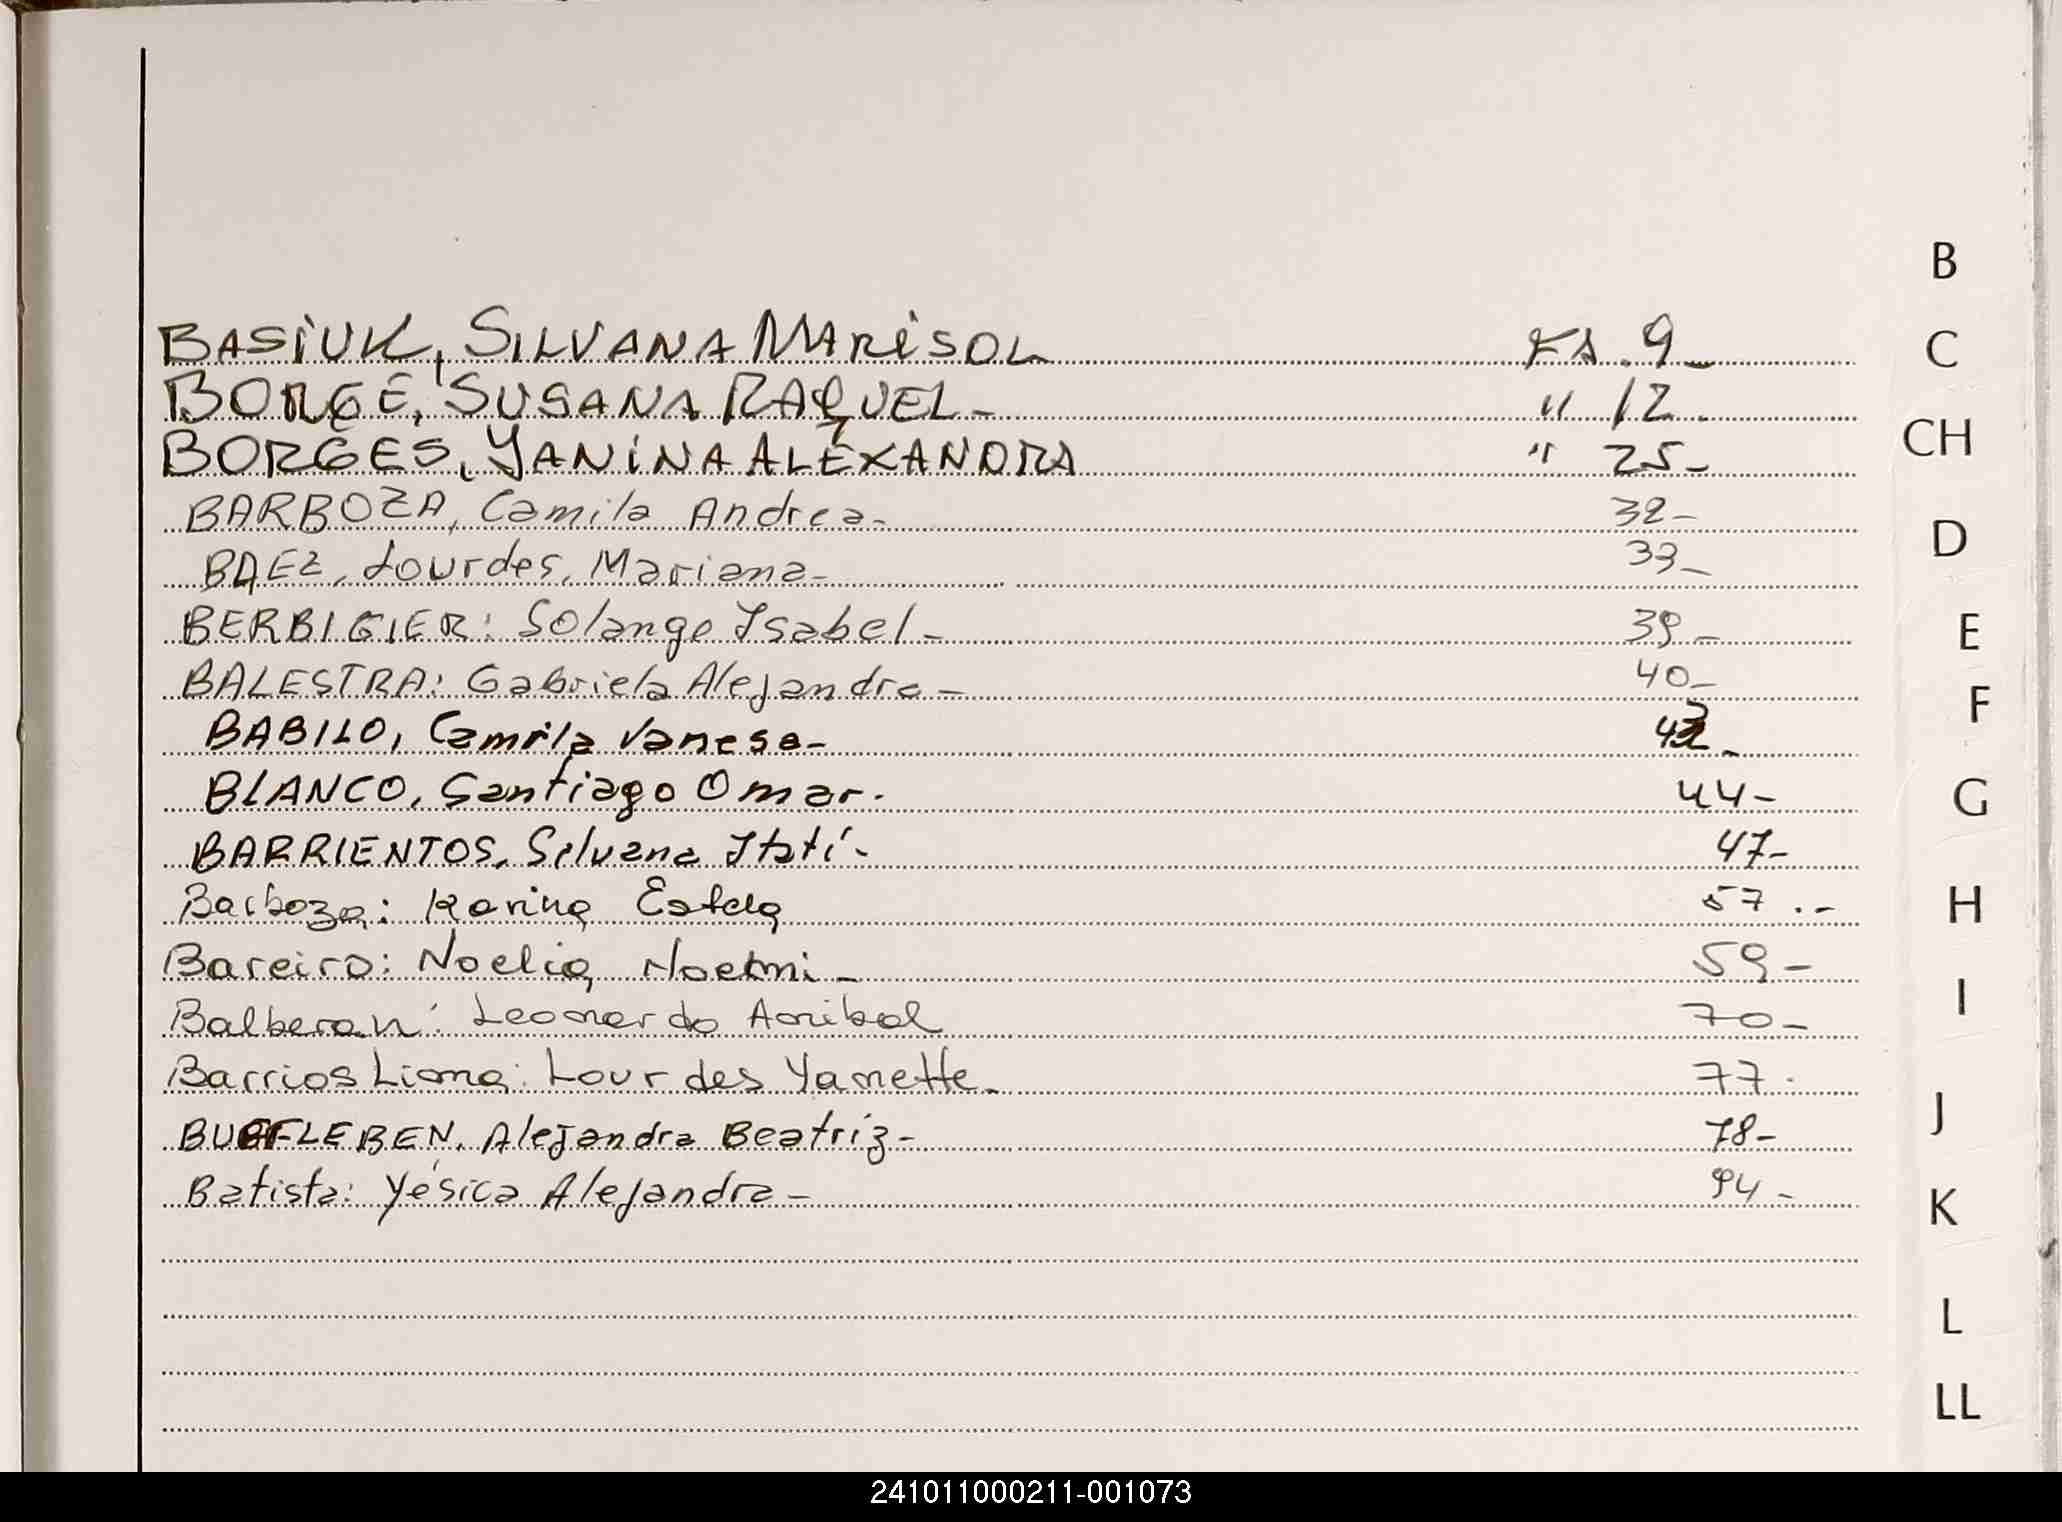 BASiUK, SILVANA MARiSOL Fs. 9_
BORGE, SUSANA RAQUEL_ " 12.
BORGES, YANiNA ALEXANDRA " 25_
BARBOZA, Camila Andrea- 32-
BAEZ, Lourdes, Mariana- 33_
BERBIGIER: Solange Isabel- 39-
BALESTRA: Gabriela Alejandra- 40-
BABILO, Camila Vanesa- 43-
BLANCO, Santiago Omar. 44-
BARRIENTOS, Silvana Itatí- 47-
Barboza: Karina Estela 57.-
Bareiro: Noelia Noemi_ 59-
Balberan: Leonardo Anibal 70-
Barrios Liana: Lourdes Yanette_ 77.
Alejandra Beatriz- 78-
Batista: Yésica Alejandra- 94-
B
C
CH
D
E
F
G
H
I
J
K
L
LL
241011000211-001073